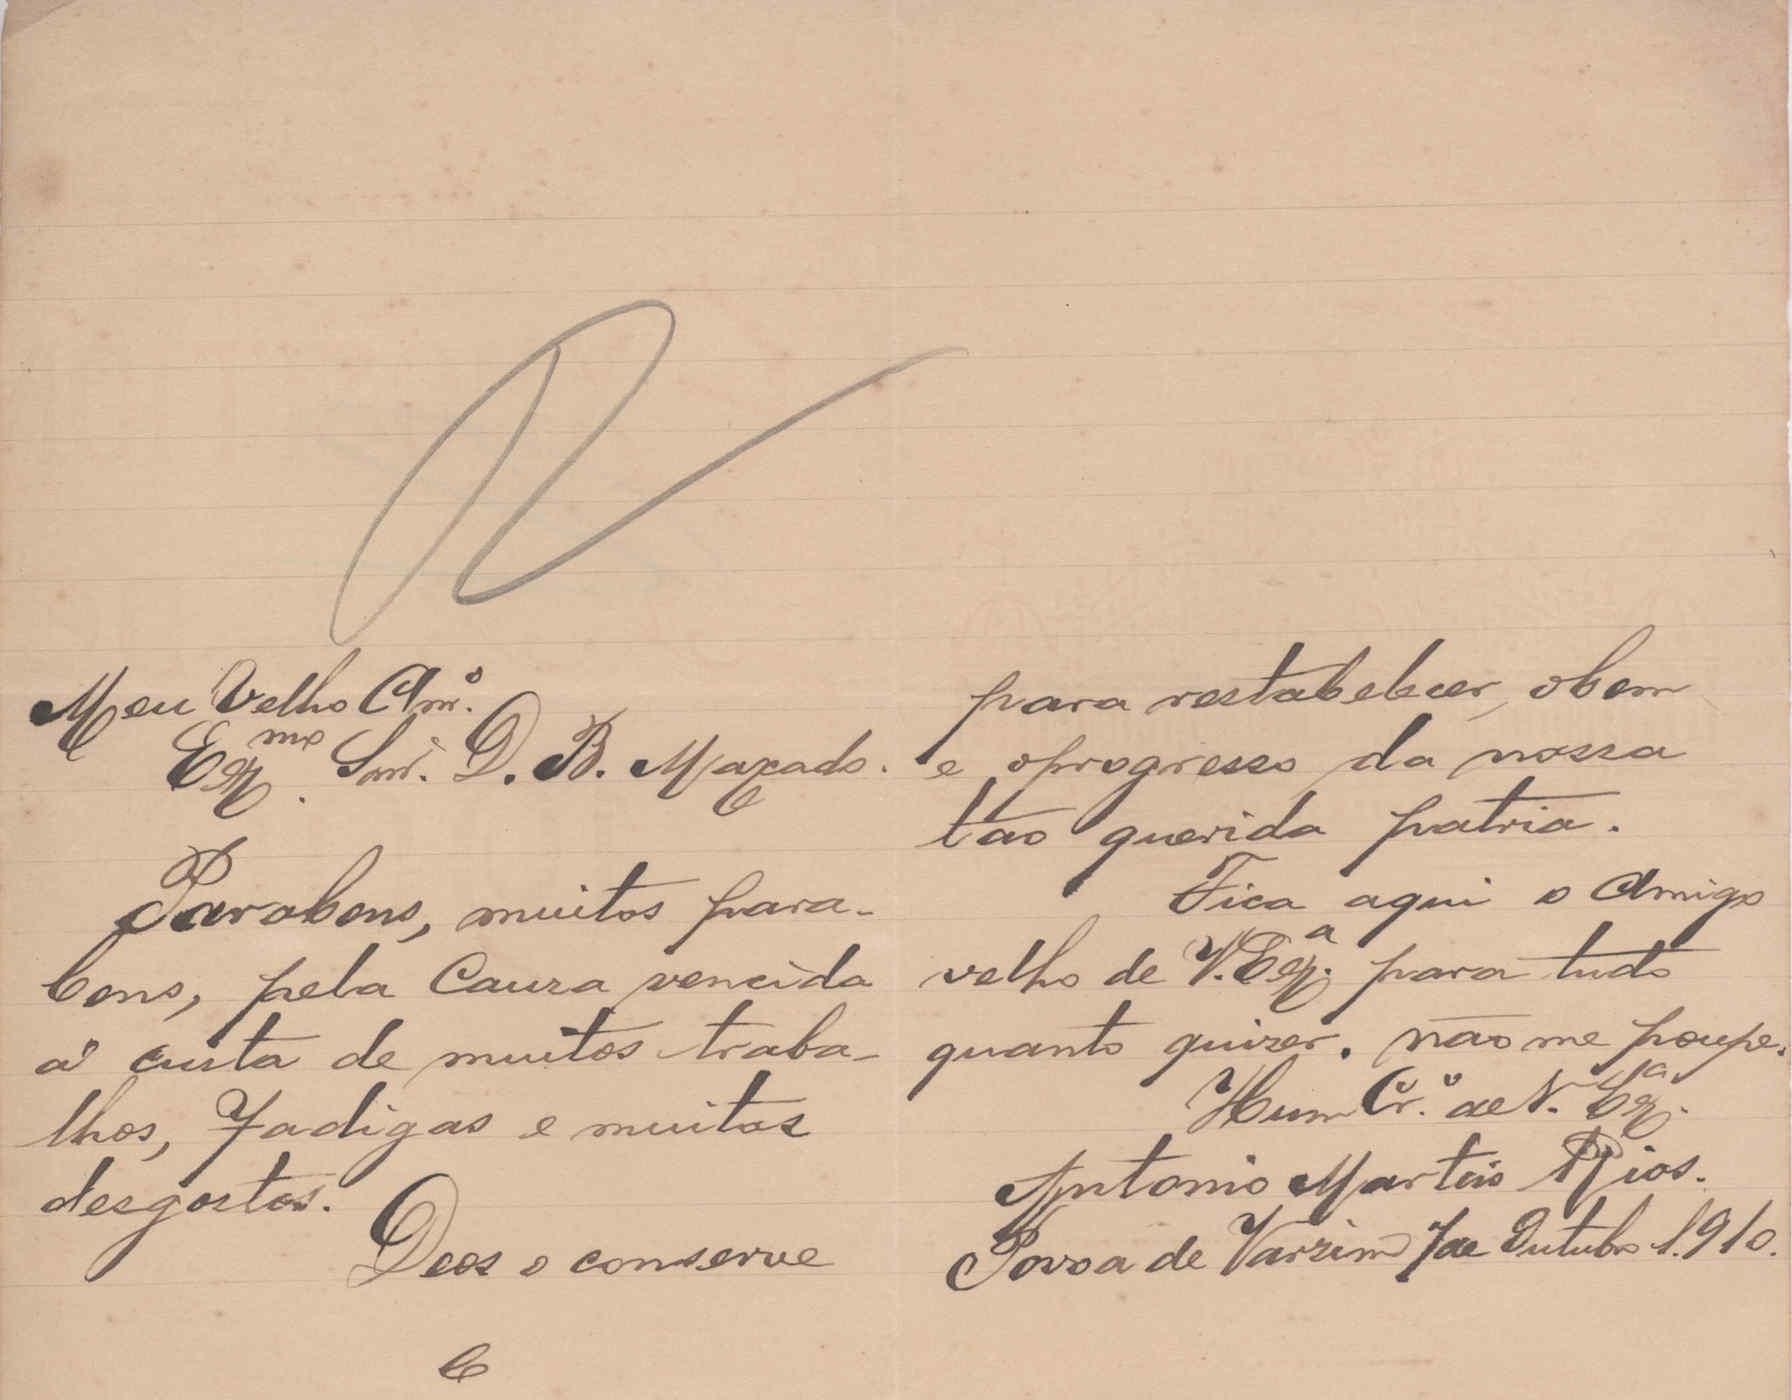 Meu Velho Am.º
Ex.mo Snr. D. B. Maxado.
Parabens, muitos para-
bens, pela Cauza vencida
á custa de muitos traba-
lhos, Fadigas e muitos
desgostos.
Deos o conserve
e
para restabelecer, obem
e oprogresso da nossa
tão querida patria.
Fica aqui o Amigo
velho de V. Ex.a para tudo
quanto quizer. não me poupe.
Hum Cr.º de V. Ex.a
Antonio Martins Rios.
Povoa de Varzim 7 de Outubro 1.910.